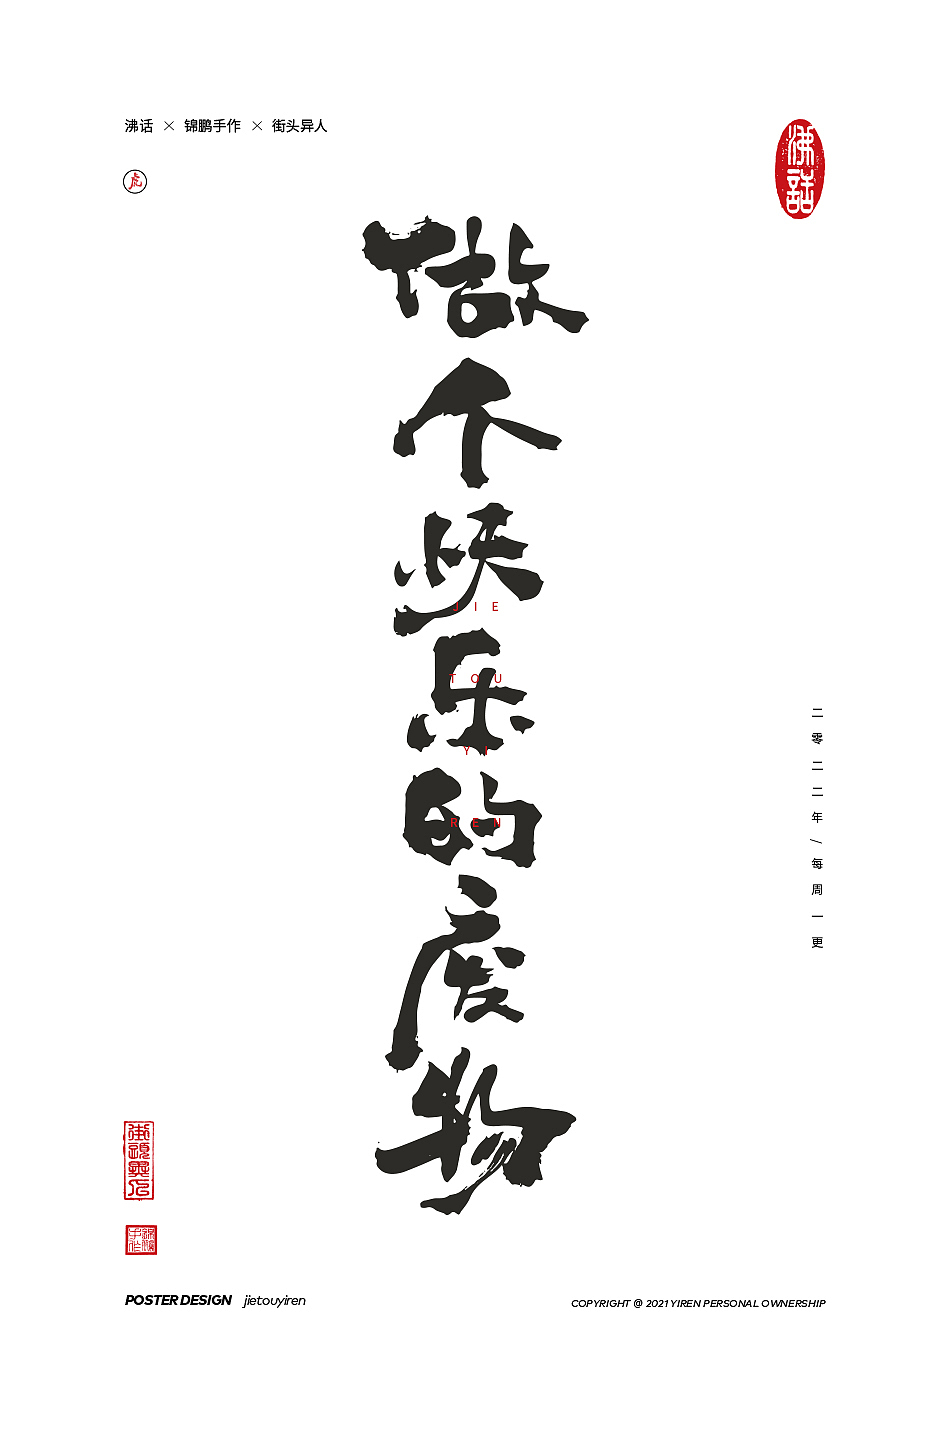 沸话 × 锦鹏手作 × 街头异人
虎
沸話
做个快乐的废物
JIE
TOU
YI
REN
二零二二年/每周一更
街頭異人
POSTER DESIGN jietouyiren
COPYRIGHT @ 2021 YIREN PERSONAL OWNERSHIP